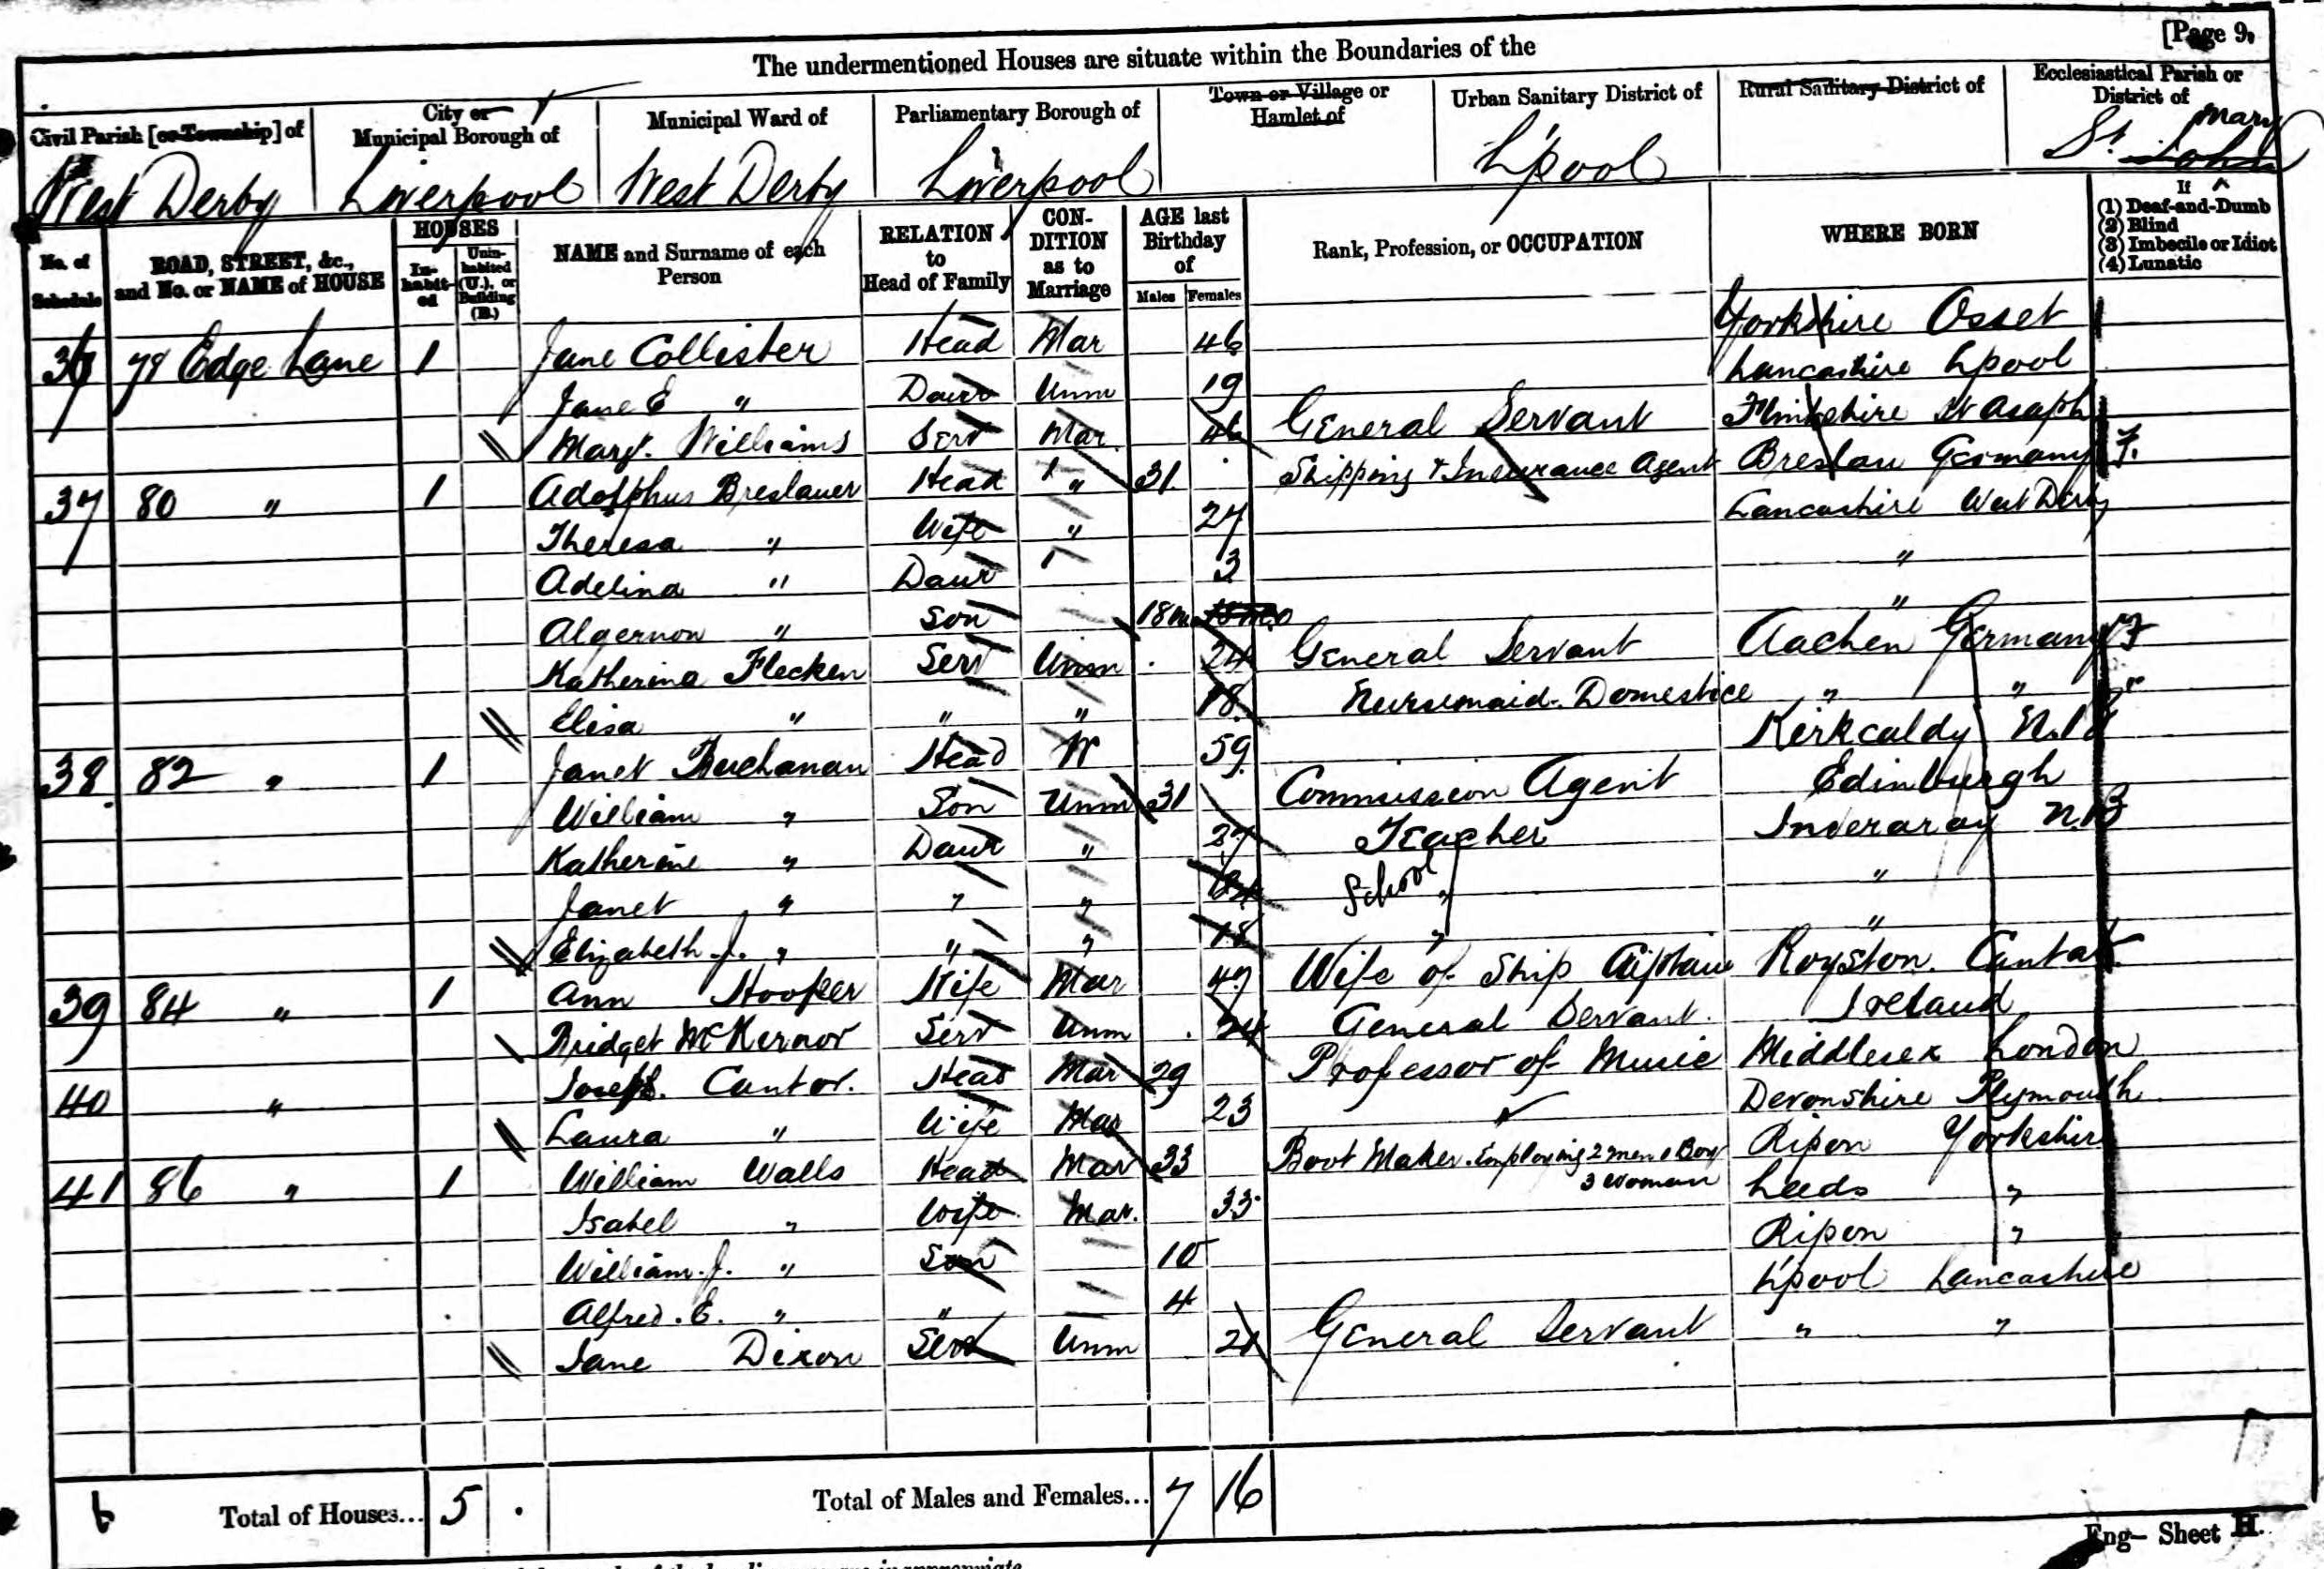 [Page 9.
The undermentioned Houses are situate within the Boundaries of the
Civil Parish [or Township] of | City or Municipal Borough of | Municipal Ward of | Parliamentary Borough of | Town or Village or Hamlet of | Urban Sanitary District of | Rural Sanitary District of | Ecclesiastical Parish or District of
West Derby | Liverpool | West Derby | Liverpool | L'pool | St. John Mary
No. of Schedule | ROAD, STREET, &c., and No. or NAME of HOUSE | HOUSES Inhabited | Uninhabited (U.), or Building (B.) | NAME and Surname of each Person | RELATION to Head of Family | CONDITION as to Marriage | AGE last Birthday of Males | Females | Rank, Profession, or OCCUPATION | WHERE BORN | If (1) Deaf-and-Dumb (2) Blind (3) Imbecile or Idiot (4) Lunatic
36 79 Edge Lane 1 Jane Collister Head Mar 46 Yorkshire Osset
Jane E " Daur Unm 19 Lancashire Lpool
Mary. Williams Serv Mar 46 General Servant Flintshire St Asaph
37 80 " 1 Adolphus Breslauer Head " 31 Shipping & Insurance Agent Breslau Germany F.
Theresa " Wife " 27 Lancashire West Derby
Adelina " Daur 3 "
Algernon " Son 18m 18mo "
Katherina Flecken Serv Unm 24 General Servant Aachen Germany F
Elisa " " " 18 Nursemaid. Domestice " "
38 82 " 1 Janet Buchanan Head W 59 Kirkcaldy N.B
William " Son Unm 31 Commission Agent Edinburgh
Katherine " Daur " 27 Teacher Inveraray N.B
Janet " " " School " "
Elizabeth J. " " " 18 " "
39 84 " 1 Ann Hooper Wife Mar 47 Wife of Ship Captain Royston. Cantab.
Bridget McKernor Serv Unm 24 General Servant. Ireland
40 " Joseph. Cantor. Head Mar 29 Professor of Music Middlesex London
Laura " Wife Mar 23 Devonshire Plymouth
41 86 " 1 William Walls Head Mar 33 Boot Maker. Employing 2 men 1 Boy 3 Woman Ripon Yorkshire
Isabel " Wife Mar. 33 Leeds "
William. J. " Son 10 Ripon "
Alfred. E. " " 4 L'pool Lancashire
Jane Dixon Serv Unm 21 General Servant " "
6 Total of Houses... 5 . Total of Males and Females... 7 16
Eng— Sheet H.